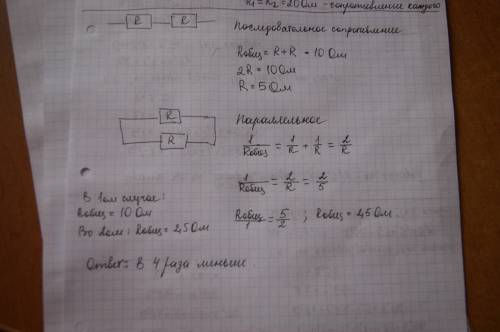 R1 = R2 = 20 Ом - сопротивление каждого
R R
Последовательное сопротивление
Rобщ = R + R = 10 Ом
2R = 10 Ом
R = 5 Ом
R
R
Параллельное
1/Rобщ = 1/R + 1/R = 2/R
1/Rобщ = 2/R = 2/5
Rобщ/1 = 5/2 ; Rобщ = 45 Ом
В 1ом случае:
Rобщ = 10 Ом
Во 2ом: Rобщ = 45 Ом
Ответ: В 4 раза меньше